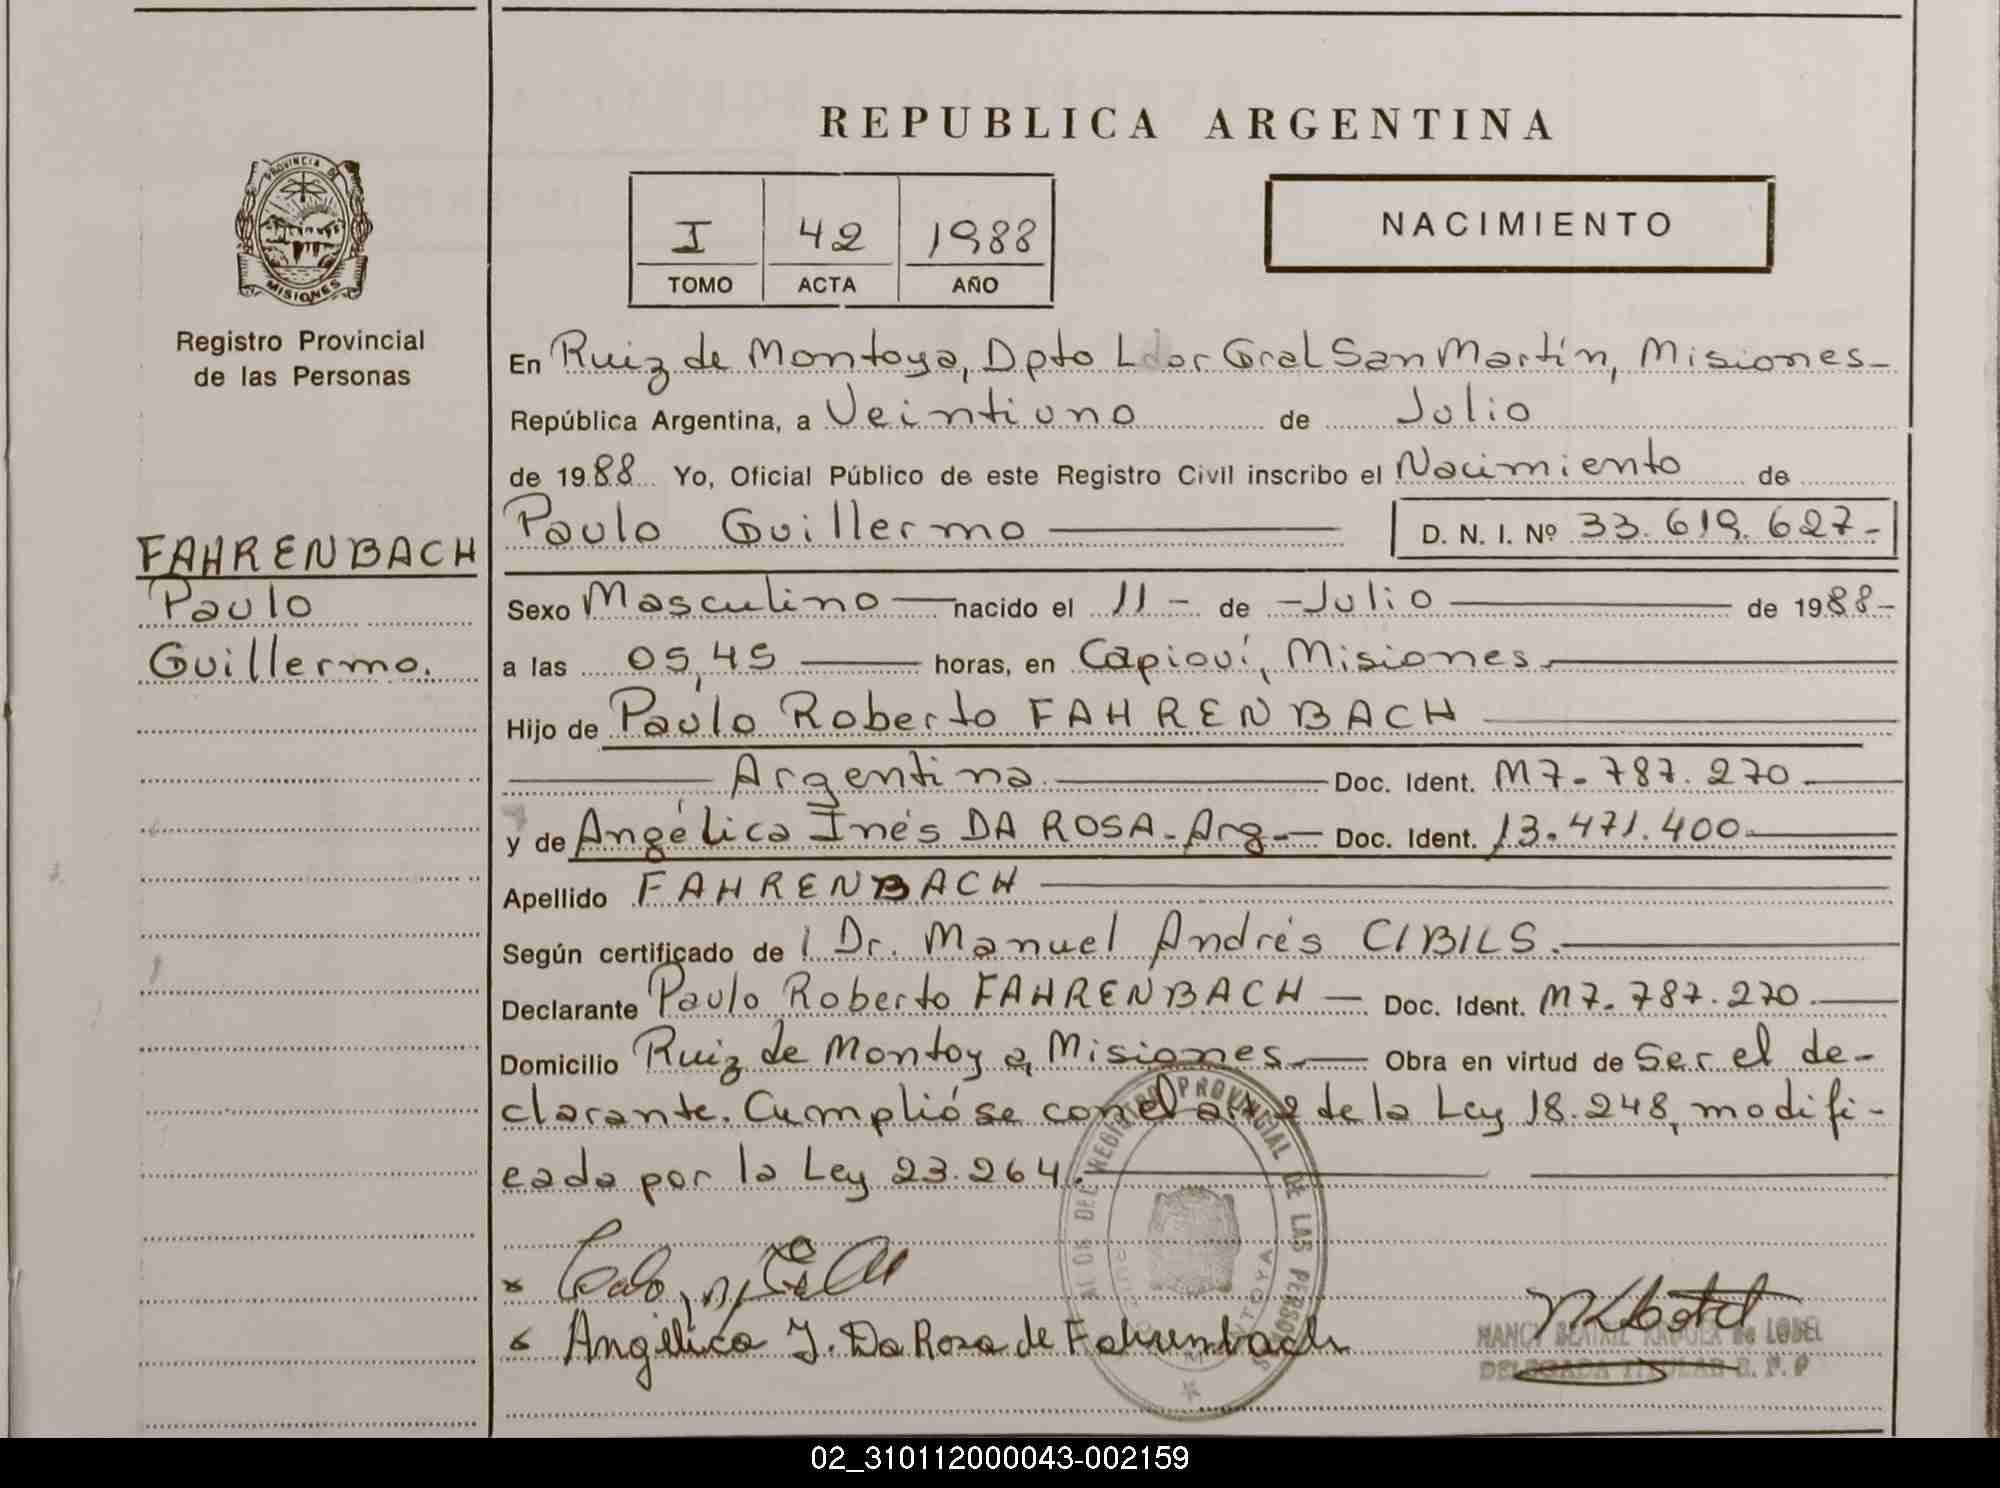 REPUBLICA ARGENTINA
PROVINCIA DE
MISIONES
Registro Provincial
de las Personas
I 42 1988
TOMO ACTA AÑO
NACIMIENTO
En Ruiz de Montoya, Dpto Ldor Gral San Martín, Misiones-
República Argentina, a Veintiuno de Julio
de 1988 Yo, Oficial Público de este Registro Civil inscribo el Nacimiento de
Paulo Guillermo D. N. I. Nº 33.619.627-
FAHRENBACH
Paulo
Guillermo.
Sexo Masculino nacido el 11 - de - Julio de 1988-
a las 05,45 horas, en Capioví, Misiones
Hijo de Paulo Roberto FAHRENBACH
Argentina Doc. Ident. M7-787.270
y de Angélica Inés DA ROSA-Arg- Doc. Ident. 13.471.400
Apellido FAHRENBACH
Según certificado de l Dr. Manuel Andrés CIBILS.
Declarante Paulo Roberto FAHRENBACH - Doc. Ident. M7.787.270.
Domicilio Ruiz de Montoya, Misiones Obra en virtud de Ser el de-
clarante. Cumplióse con el art 2 de la Ley 18.248, modifi-
cada por la Ley 23.264.
REGISTRO PROVINCIAL DE LAS PERSONAS
Angélica I. Da Rosa de Fahrenbach
NANCY BEATRIZ de LOBEL
DELEGADA TITULAR R. P. P
02_310112000043-002159